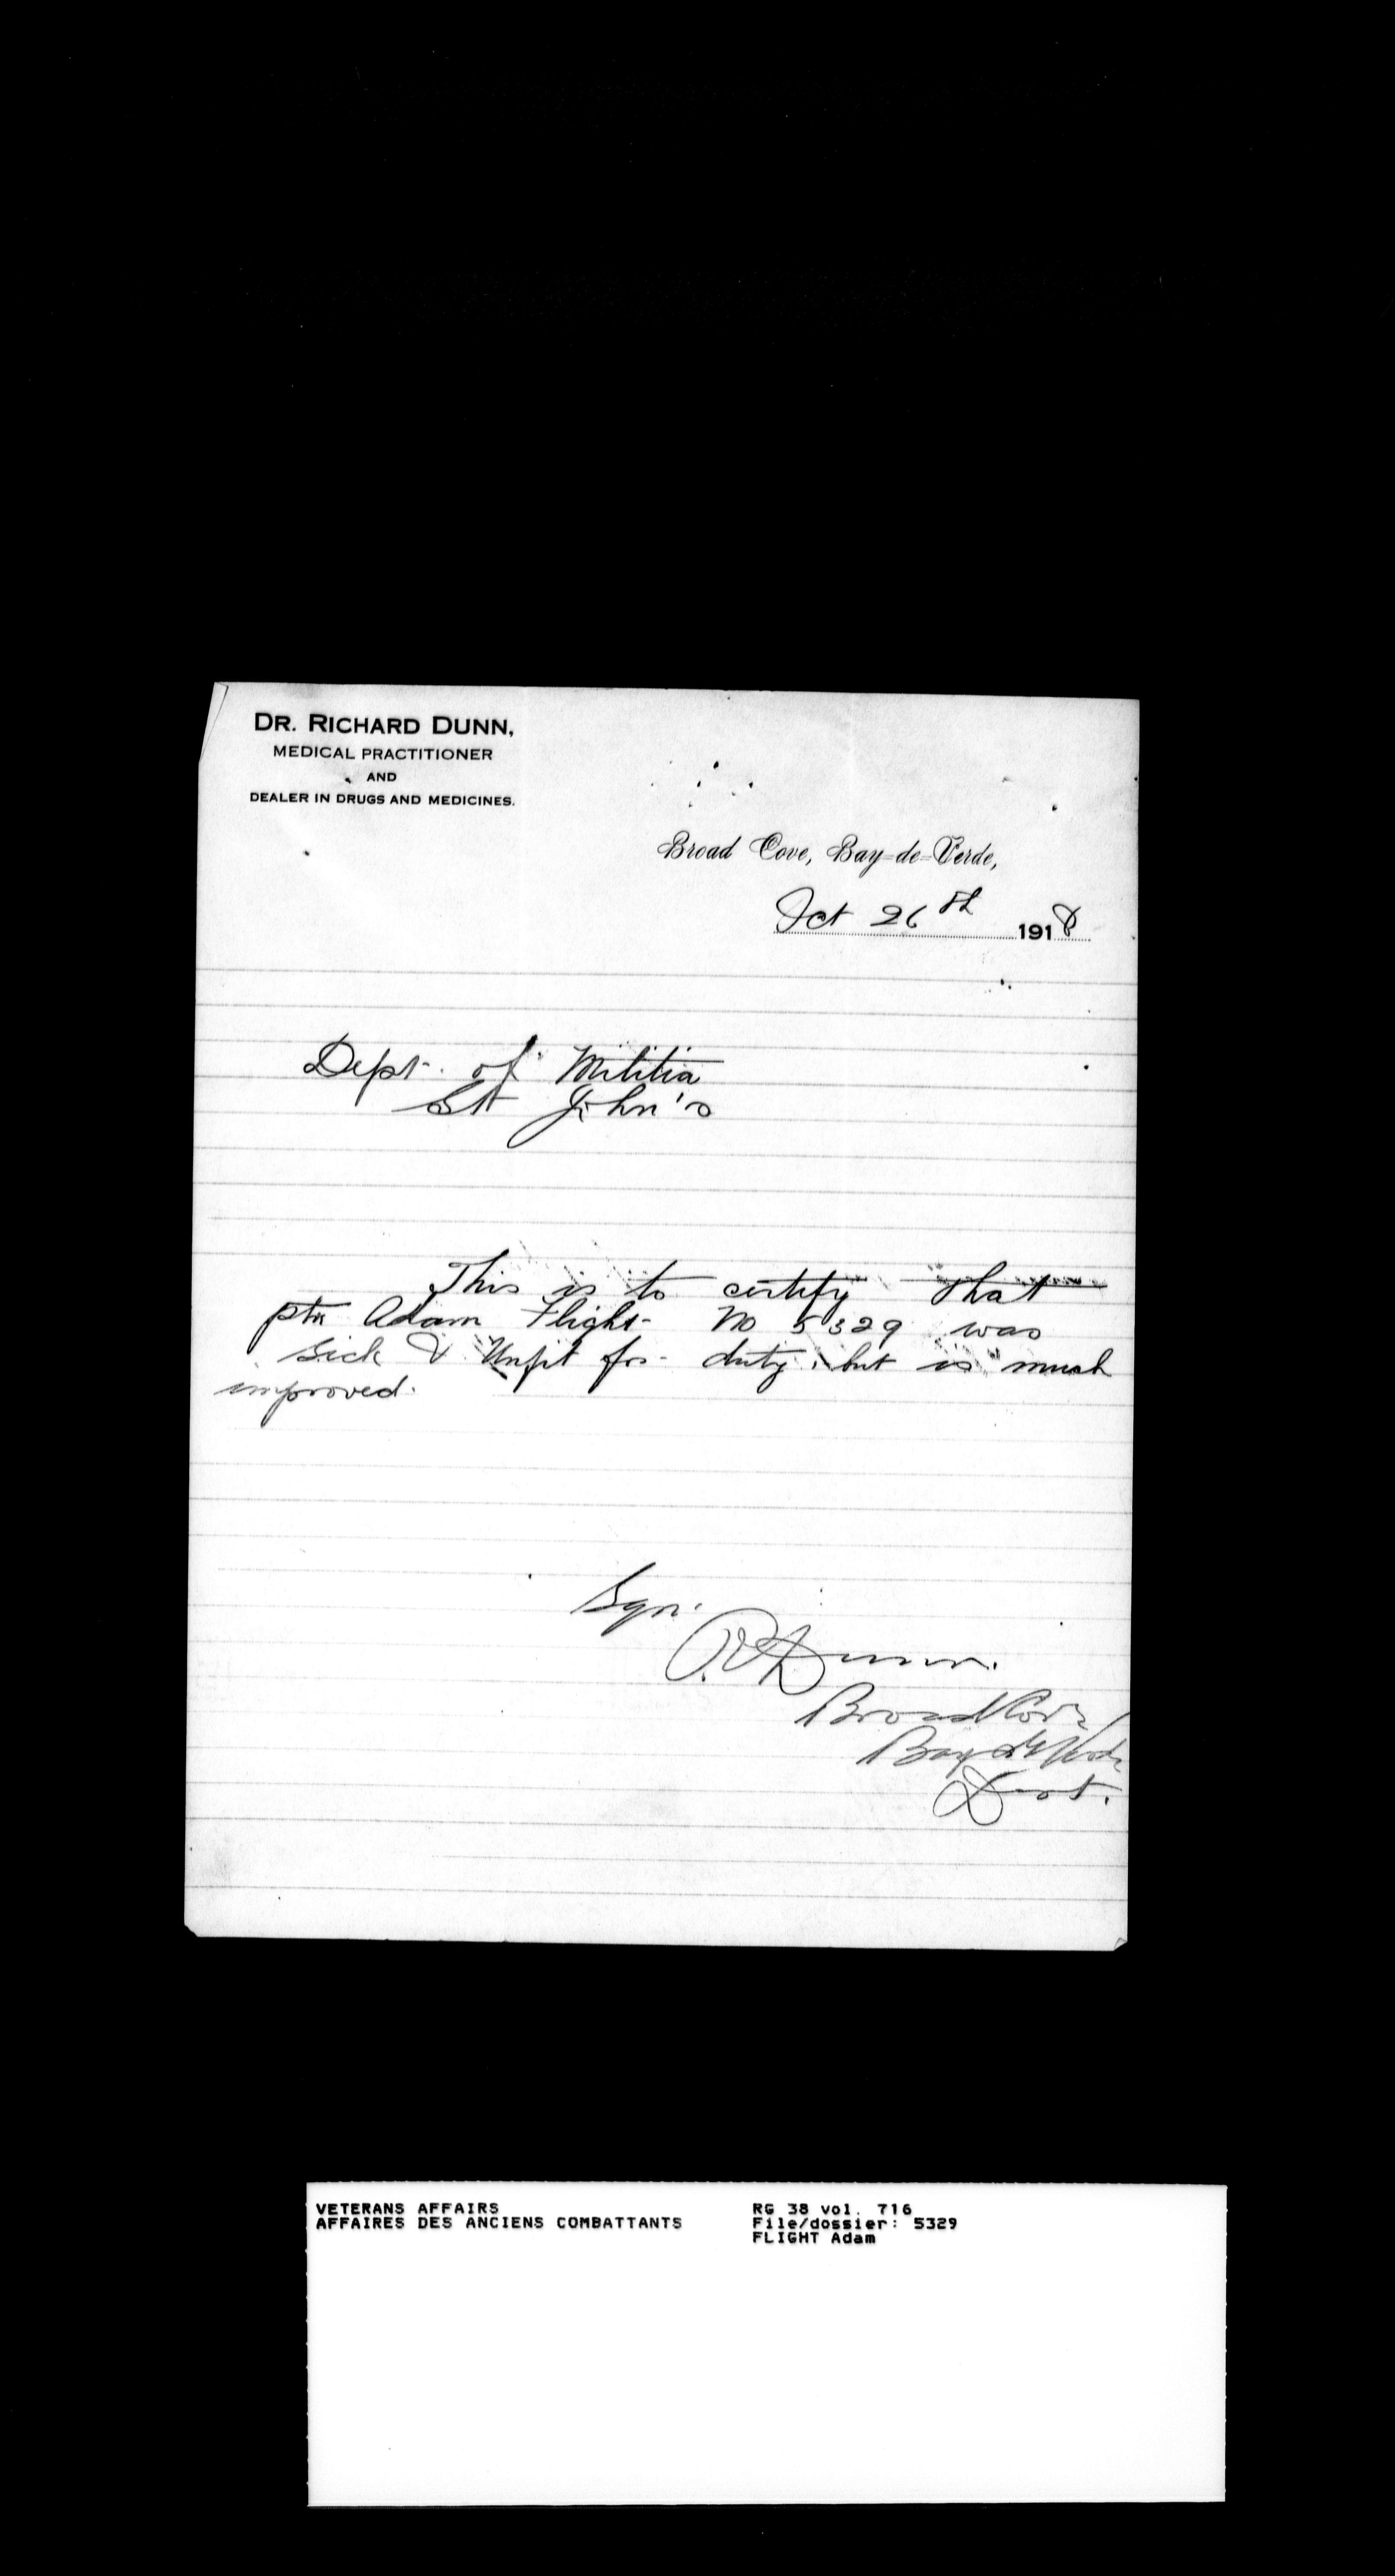 DR. RICHARD DUNN,
MEDICAL PRACTITIONER
AND
DEALER IN DRUGS AND MEDICINES.
Broad Cove, Bay-de-Verde,
Oct 26th 1918
Dept. of Militia
St John's
This is to certify that
Adam Flight No 5329 was
sick & Unfit for duty, but is much
improved.
Sgn.
R Dunn.
Broad Cove
Bay de Verde
Dist.
VETERANS AFFAIRS
AFFAIRES DES ANCIENS COMBATTANTS
RG 38 vol. 716
File/dossier: 5329
FLIGHT Adam